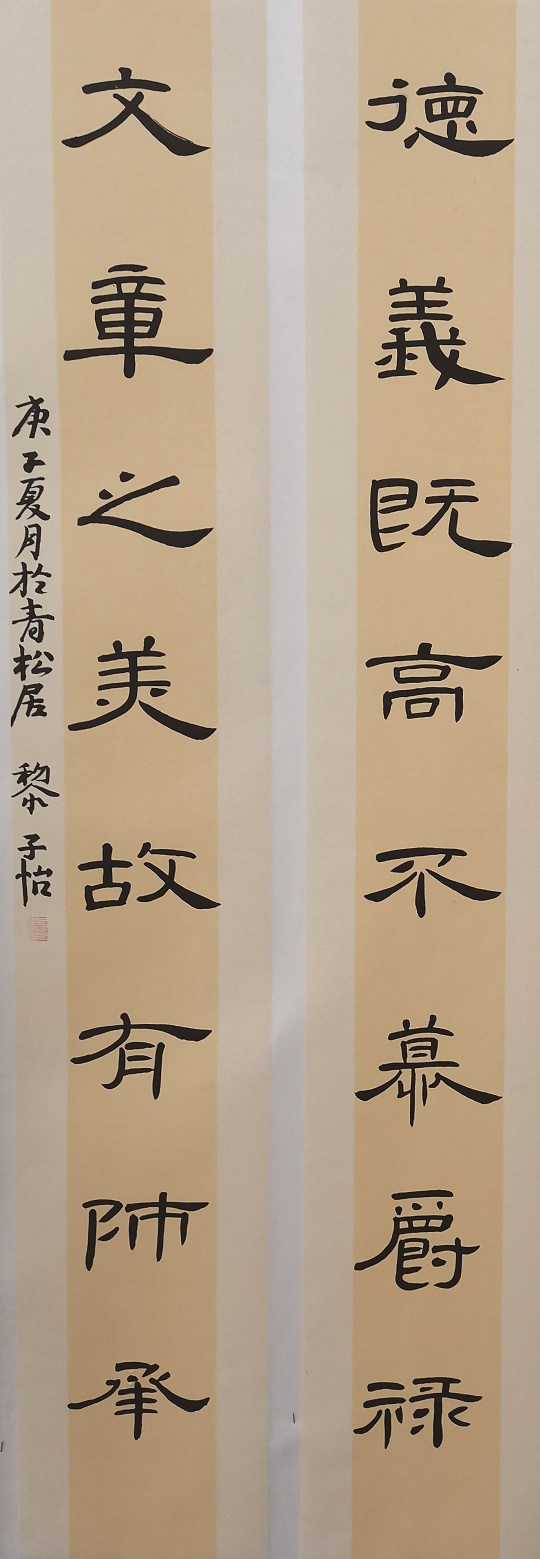 德義既高不慕爵禄
文章之美故有师承
庚子夏月於青松居 黎子怡